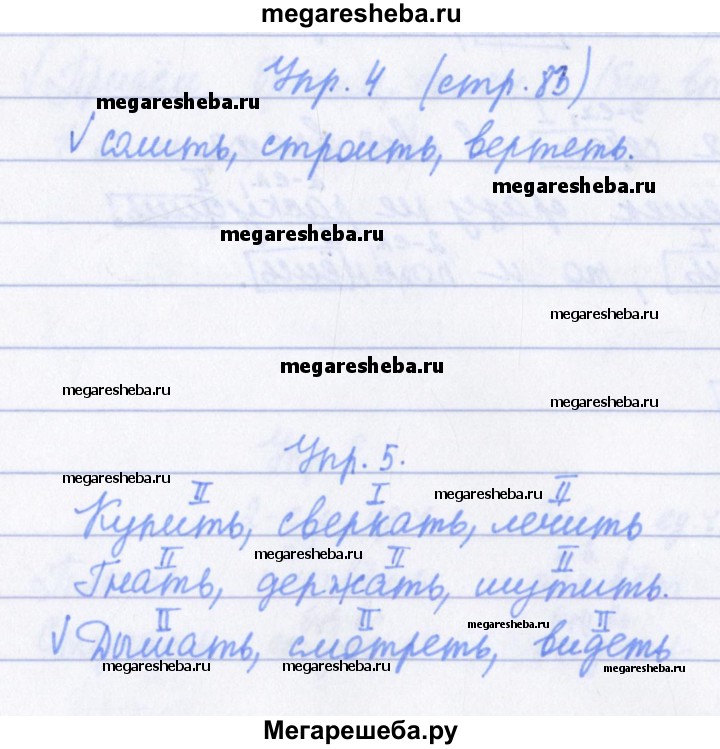 megaresheba.ru
Упр. 4 (стр. 83)
megaresheba.ru
√ солить, строить, вертеть.
megaresheba.ru
megaresheba.ru
megaresheba.ru
megaresheba.ru
megaresheba.ru
megaresheba.ru
Упр. 5.
megaresheba.ru
II I II
megaresheba.ru
Купить, сверкать, лечить
megaresheba.ru
II II II
Гнать, держать, шутить.
II II II
megaresheba.ru
√ Дышать, смотреть, видеть
megaresheba.ru megaresheba.ru megaresheba.ru
Мегарешеба.ру